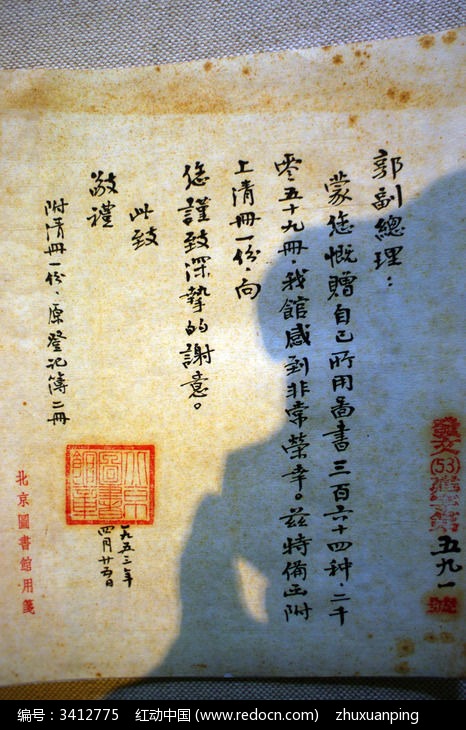 郭副總理：
蒙您慨贈自己所用圖書三百六十四种，二千
零五十九冊，我館感到非常榮幸。茲特備函附
上清冊一份，向
您謹致深摯的謝意。
此致
敬禮
附清冊一份、原登記簿二冊
一九五三年
四月廿五日
北京圖書館用箋
(53)
五九一
號
編号：3412775 红动中国 (www.redocn.com) zhuxuanping